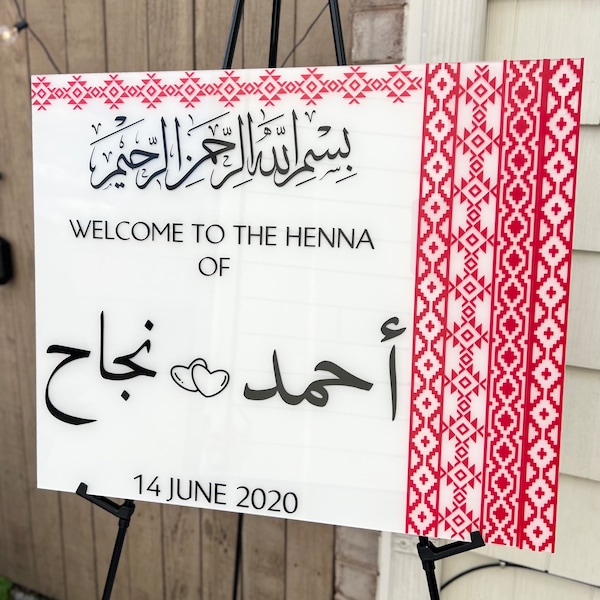 بِسْمِ اللَّهِ الرَّحْمَٰنِ الرَّحِيْمِ
WELCOME TO THE HENNA
OF
أحمد نجاح
14 JUNE 2020